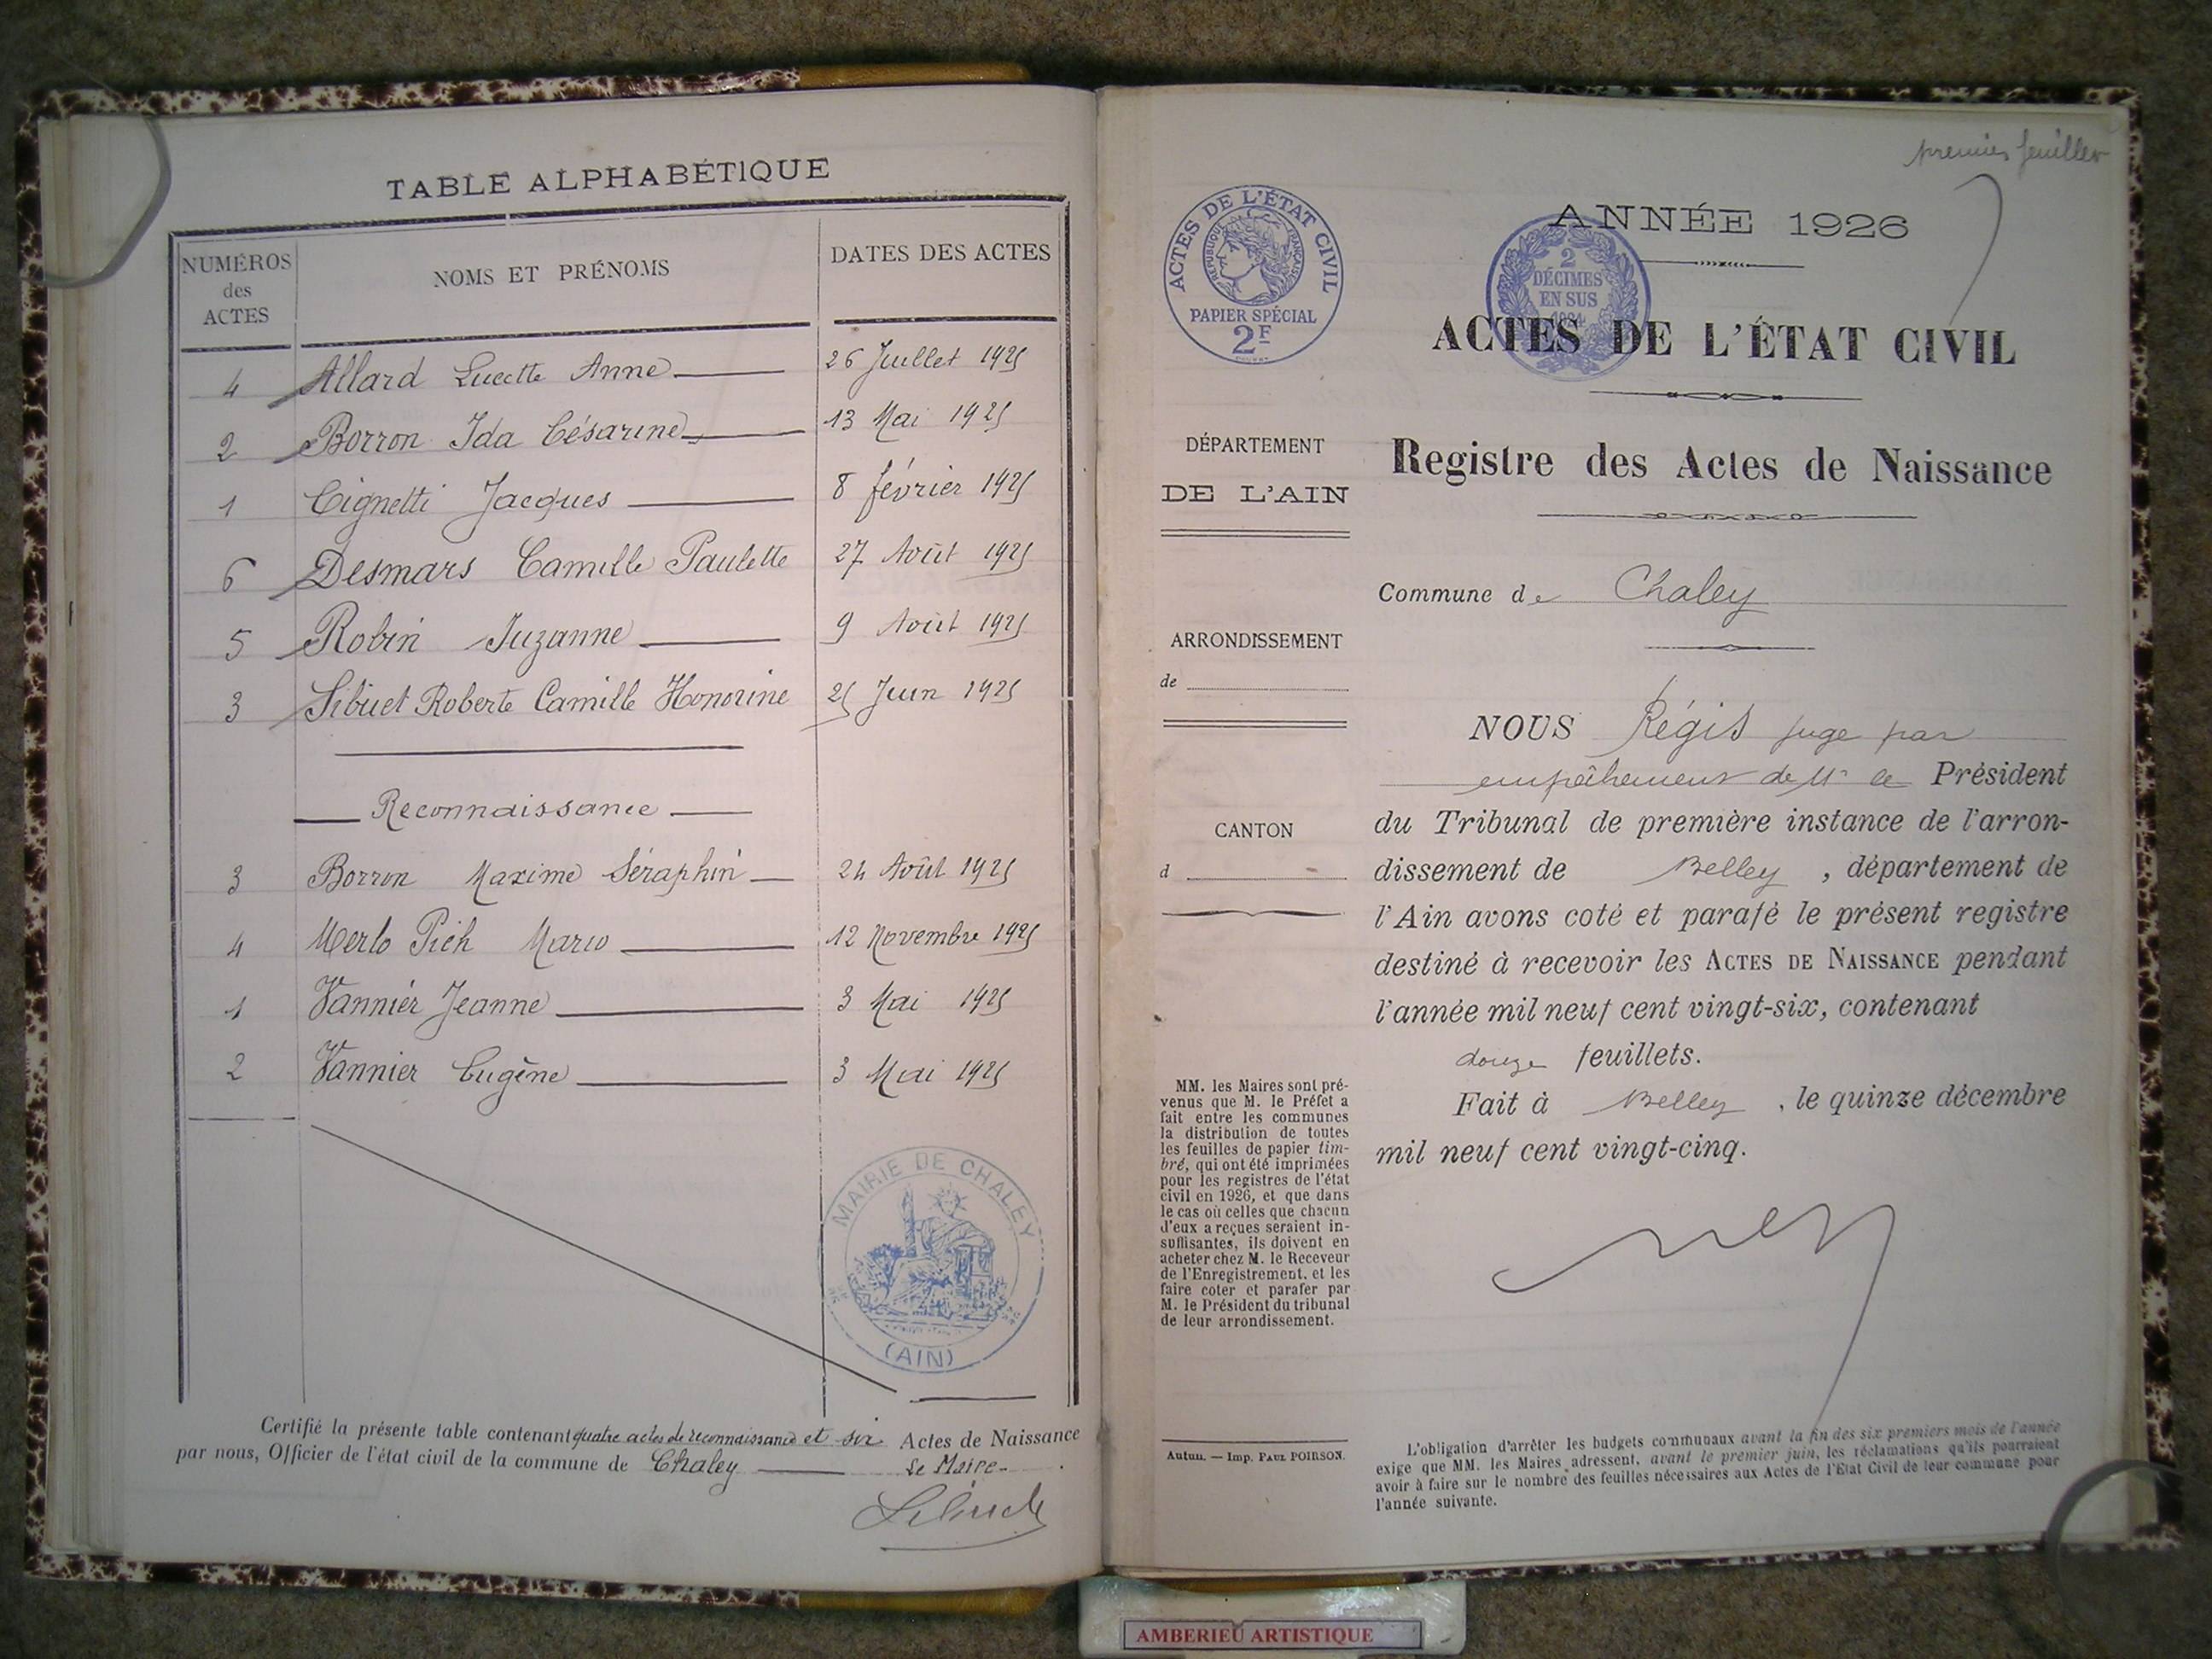 TABLE ALPHABÉTIQUE
NUMÉROS des ACTES
NOMS ET PRÉNOMS
DATES DES ACTES
4 Allard Lucette Anne 26 Juillet 1925
2 Borron Ida Césarine 13 Mai 1925
1 Cignetti Jacques 8 février 1925
6 Desmars Camille Paulette 27 Août 1925
5 Robin Suzanne 9 Août 1925
3 Sibuet Roberte Camille Honorine 25 Juin 1925
Reconnaissance
3 Borron Maxime Séraphin 24 Août 1925
4 Merlo Pich Mario 12 Novembre 1925
1 Vannier Jeanne 3 Mai 1925
2 Vannier Eugène 3 Mai 1925
MAIRIE DE CHALEY
(AIN)
Certifié la présente table contenant quatre actes de reconnaissance et six Actes de Naissance
par nous, Officier de l'état civil de la commune de Chaley
Le Maire
premier feuillet
ACTES DE L'ÉTAT CIVIL
RÉPUBLIQUE FRANÇAISE
PAPIER SPÉCIAL
2F
ANNÉE 1926
2
DÉCIMES
EN SUS
ACTES DE L'ÉTAT CIVIL
Registre des Actes de Naissance
DÉPARTEMENT
DE L'AIN
Commune de Chaley
ARRONDISSEMENT
de
CANTON
d
NOUS Régis juge par
empêchement de Mr le Président
du Tribunal de première instance de l'arron-
dissement de Belley, département de
l'Ain avons coté et parafé le présent registre
destiné à recevoir les ACTES DE NAISSANCE pendant
l'année mil neuf cent vingt-six, contenant
douze feuillets.
Fait à Belley, le quinze décembre
mil neuf cent vingt-cinq.
MM. les Maires sont pré-
venus que M. le Préfet a
fait entre les communes
la distribution de toutes
les feuilles de papier tim-
bré, qui ont été imprimées
pour les registres de l'état
civil en 1926, et que dans
le cas où celles que chacun
d'eux a reçues seraient in-
suffisantes, ils doivent en
acheter chez M. le Receveur
de l'Enregistrement, et les
faire coter et parafer par
M. le Président du tribunal
de leur arrondissement.
Autun. — Imp. PAUL POIRSON.
L'obligation d'arrêter les budgets communaux avant la fin des six premiers mois de l'année
exige que MM. les Maires adressent, avant le premier juin, les réclamations qu'ils pourraient
avoir à faire sur le nombre des feuilles nécessaires aux Actes de l'Etat Civil de leur commune pour
l'année suivante.
AMBERIEU ARTISTIQUE